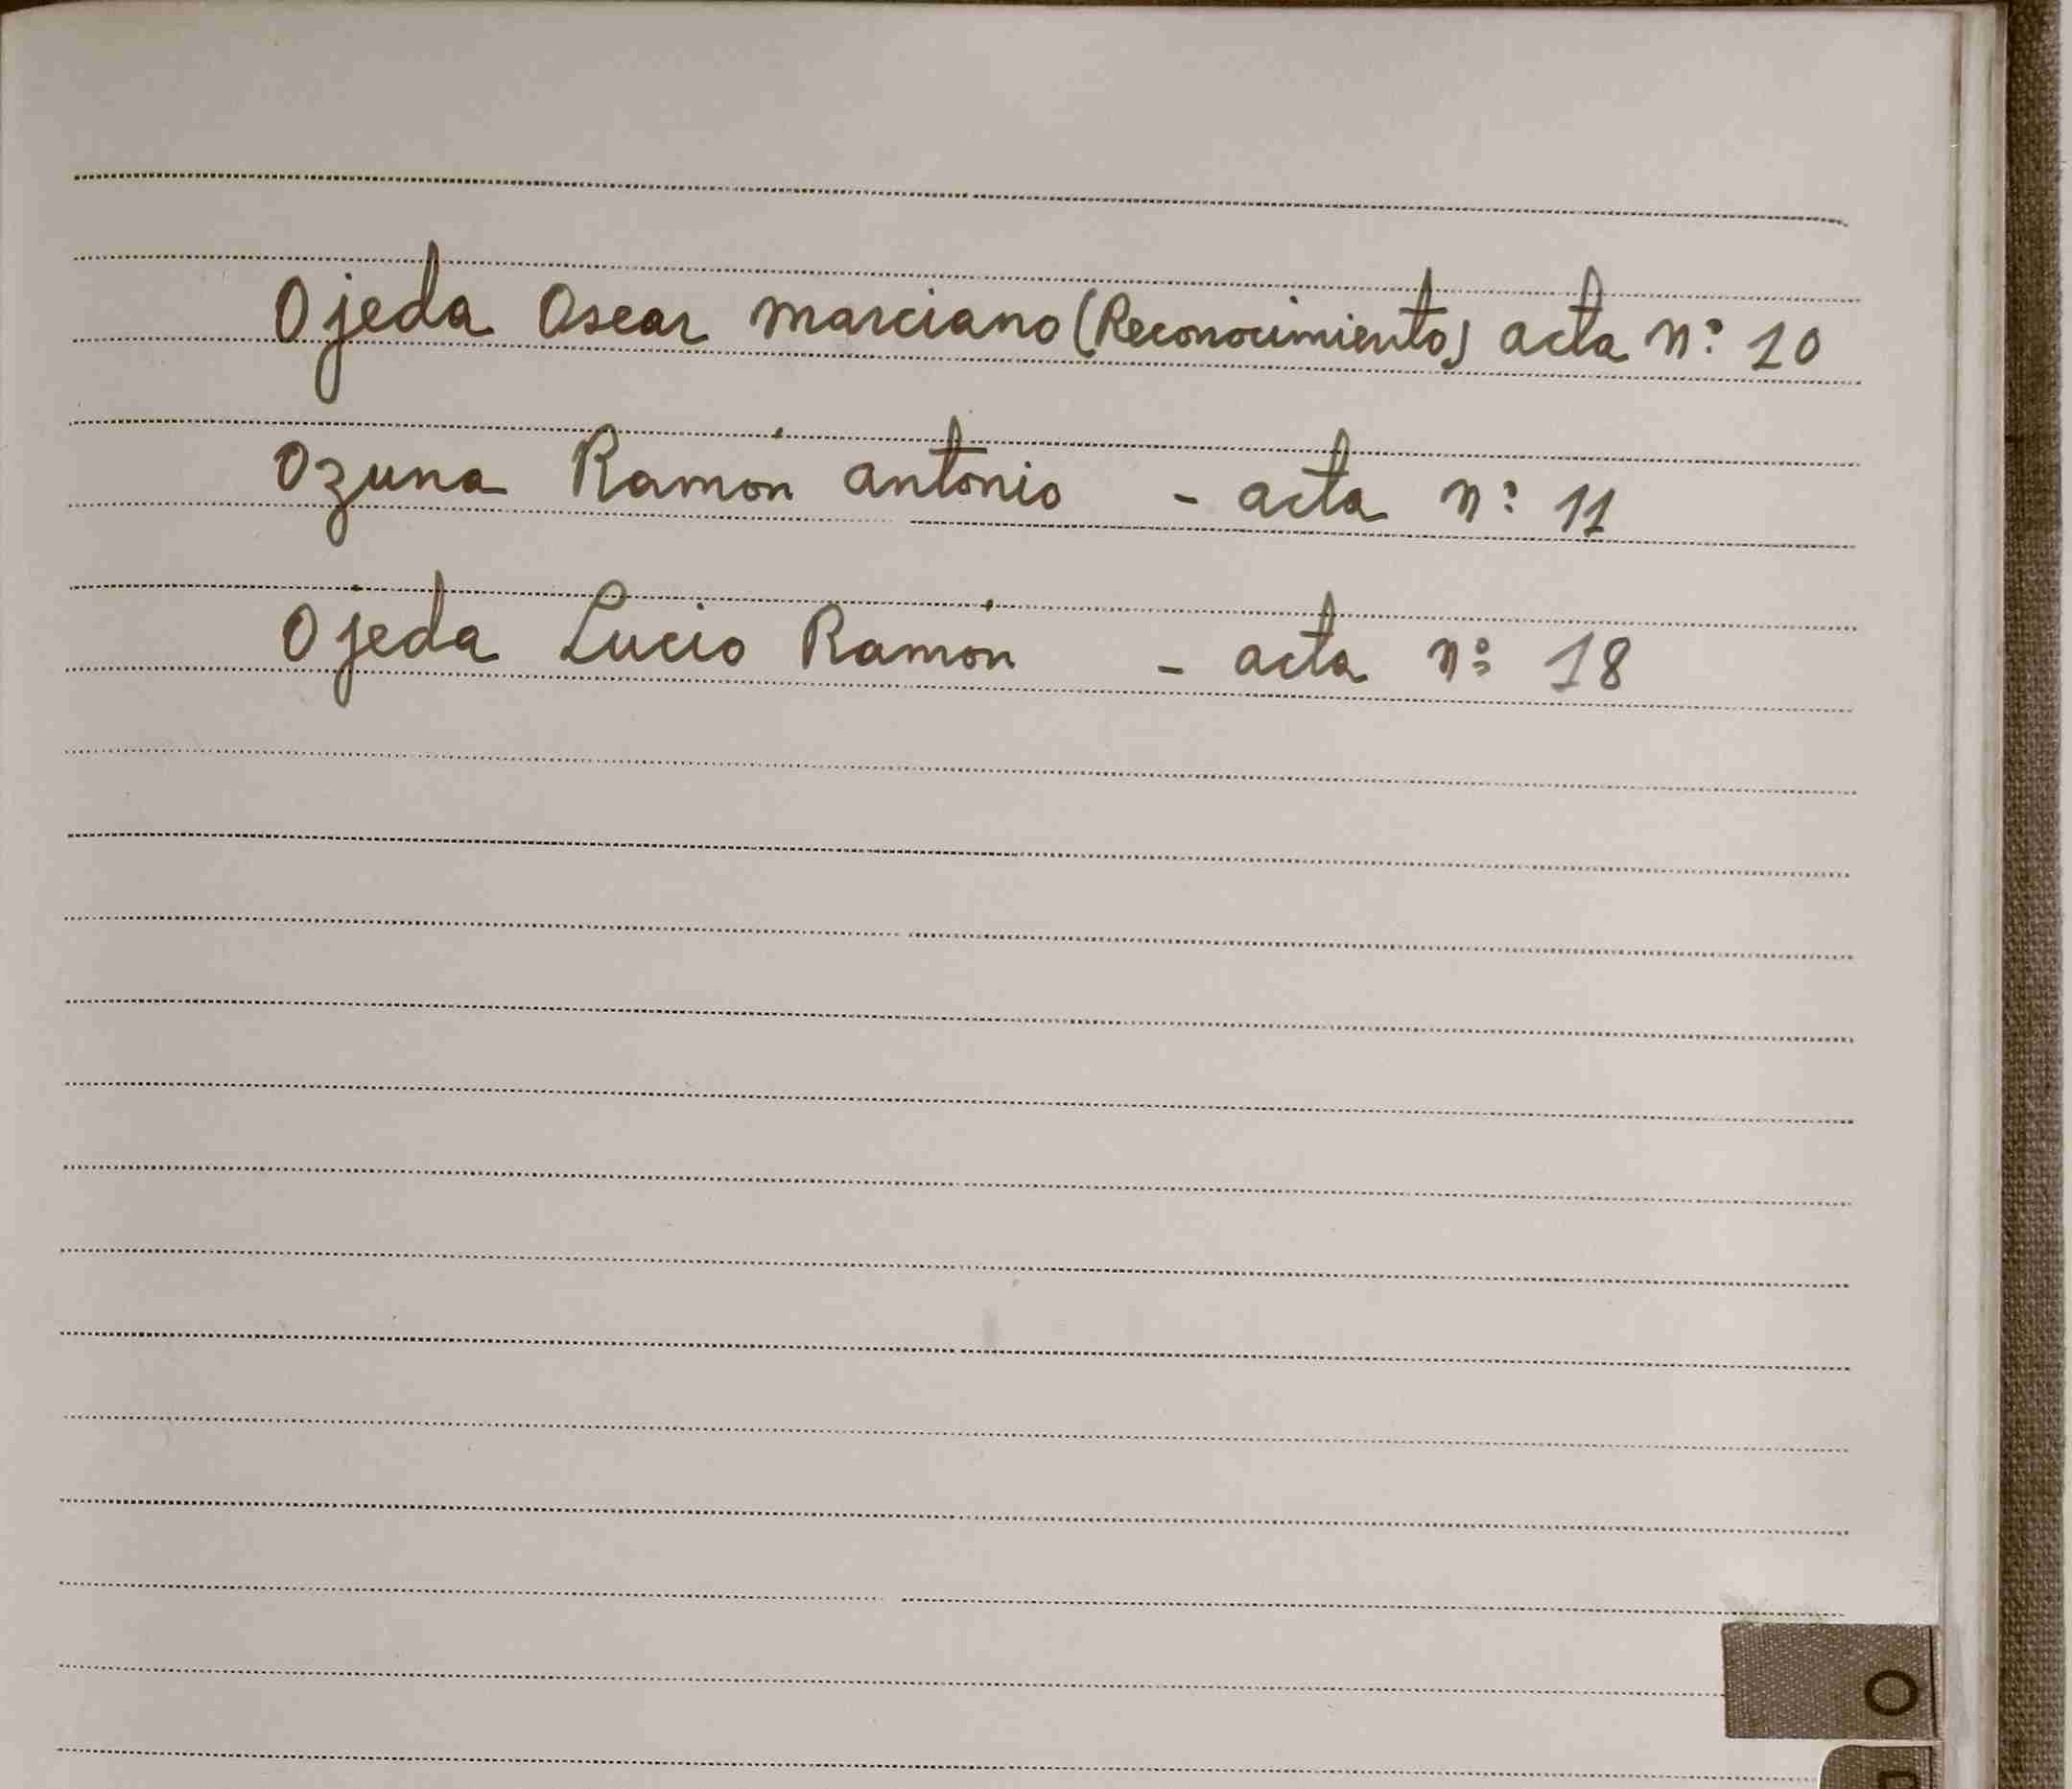 Ojeda Oscar Marciano (Reconocimiento) acta nº 10
Ozuna Ramón Antonio - acta nº 11
Ojeda Lucio Ramón - acta nº 18
O